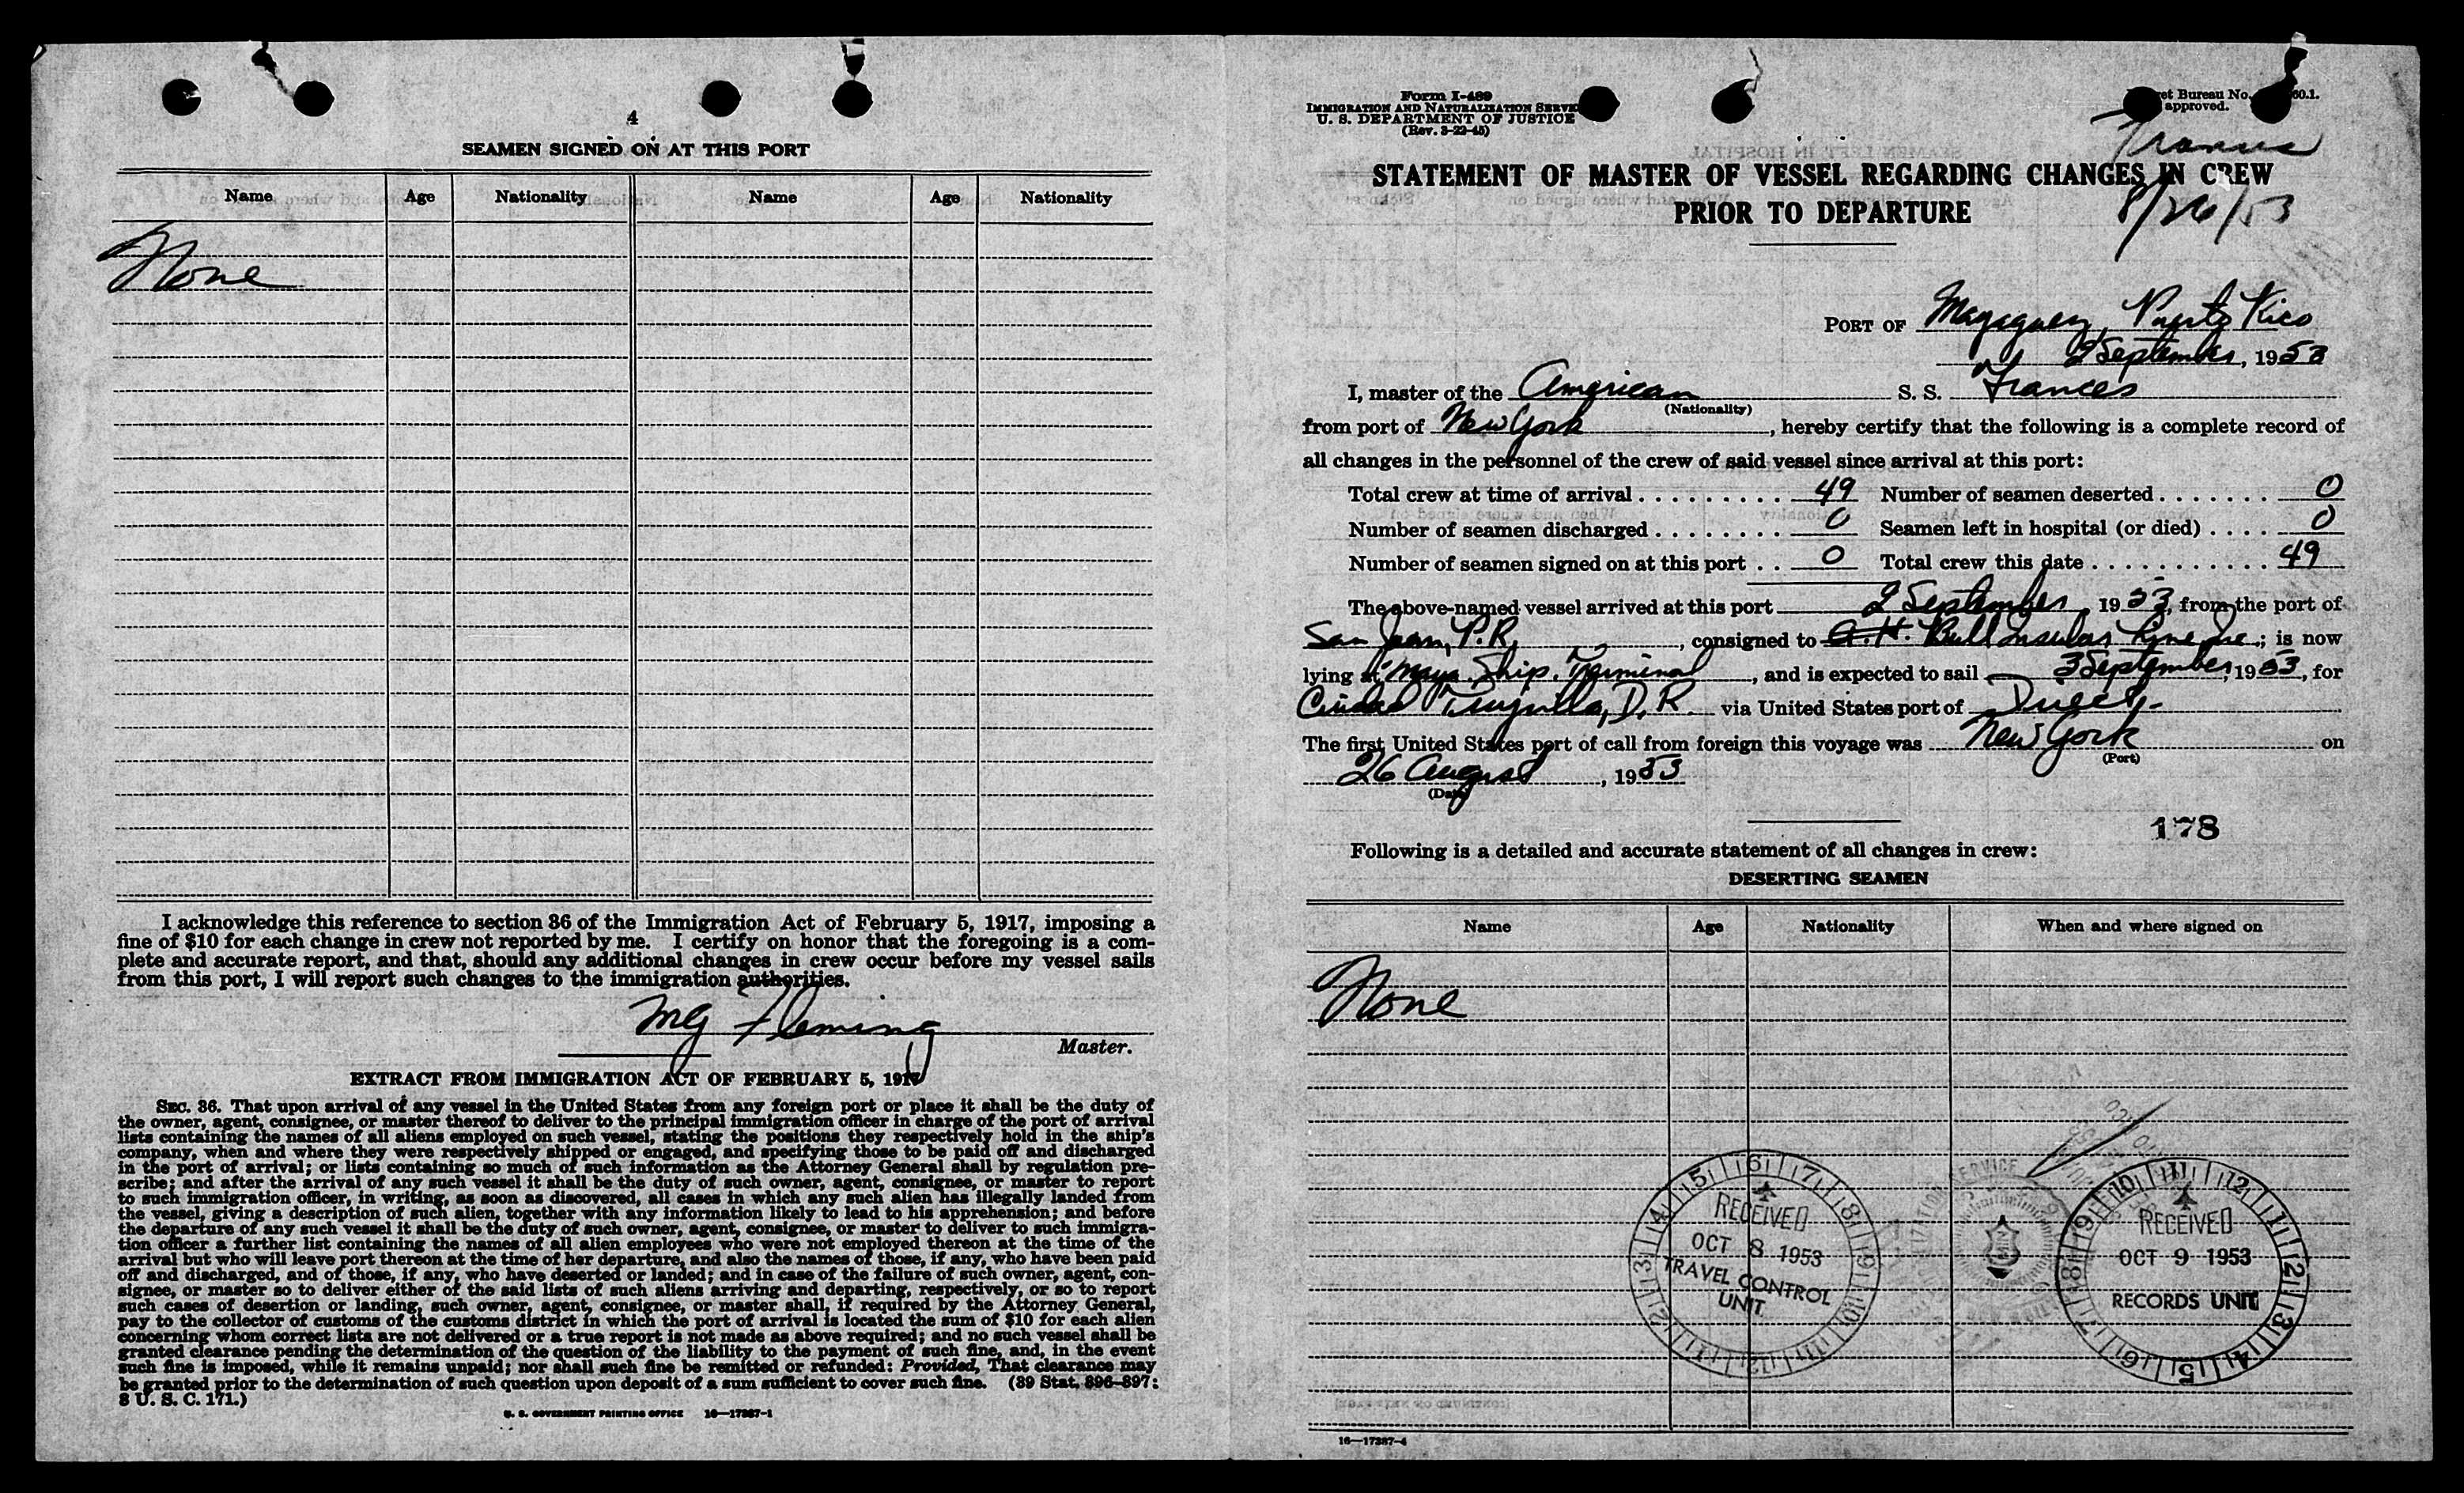 4
SEAMEN SIGNED ON AT THIS PORT
Name Age Nationality Name Age Nationality
None
I acknowledge this reference to section 36 of the Immigration Act of February 5, 1917, imposing a
fine of $10 for each change in crew not reported by me. I certify on honor that the foregoing is a com-
plete and accurate report, and that, should any additional changes in crew occur before my vessel sails
from this port, I will report such changes to the immigration authorities.
MG Fleming
Master.
EXTRACT FROM IMMIGRATION ACT OF FEBRUARY 5, 1917
SEC. 36. That upon arrival of any vessel in the United States from any foreign port or place it shall be the duty of
the owner, agent, consignee, or master thereof to deliver to the principal immigration officer in charge of the port of arrival
lists containing the names of all aliens employed on such vessel, stating the positions they respectively hold in the ship's
company, when and where they were respectively shipped or engaged, and specifying those to be paid off and discharged
in the port of arrival; or lists containing so much of such information as the Attorney General shall by regulation pre-
scribe; and after the arrival of any such vessel it shall be the duty of such owner, agent, consignee, or master to report
to such immigration officer, in writing, as soon as discovered, all cases in which any such alien has illegally landed from
the vessel, giving a description of such alien, together with any information likely to lead to his apprehension; and before
the departure of any such vessel it shall be the duty of such owner, agent, consignee, or master to deliver to such immigra-
tion officer a further list containing the names of all alien employees who were not employed thereon at the time of the
arrival but who will leave port thereon at the time of her departure, and also the names of those, if any, who have been paid
off and discharged, and of those, if any, who have deserted or landed; and in case of the failure of such owner, agent, con-
signee, or master so to deliver either of the said lists of such aliens arriving and departing, respectively, or so to report
such cases of desertion or landing, such owner, agent, consignee, or master shall, if required by the Attorney General,
pay to the collector of customs of the customs district in which the port of arrival is located the sum of $10 for each alien
concerning whom correct lists are not delivered or a true report is not made as above required; and no such vessel shall be
granted clearance pending the determination of the question of the liability to the payment of such fine, and, in the event
such fine is imposed, while it remains unpaid; nor shall such fine be remitted or refunded: Provided, That clearance may
be granted prior to the determination of such question upon deposit of a sum sufficient to cover such fine. (39 Stat. 896-897;
8 U. S. C. 171.)
U. S. GOVERNMENT PRINTING OFFICE 16—17387-1
Form I-489
IMMIGRATION AND NATURALIZATION SERVICE
U. S. DEPARTMENT OF JUSTICE
(Rev. 3-22-45)
et Bureau No. 60.1.
approved.
Frances
8/26/53
STATEMENT OF MASTER OF VESSEL REGARDING CHANGES IN CREW
PRIOR TO DEPARTURE
PORT OF Mayaguez, Puerto Rico
2 September, 1953
I, master of the American S. S. Frances
(Nationality)
from port of New York, hereby certify that the following is a complete record of
all changes in the personnel of the crew of said vessel since arrival at this port:
Total crew at time of arrival . . . . . . . . . 49 Number of seamen deserted . . . . . . . 0
Number of seamen discharged . . . . . . . . 0 Seamen left in hospital (or died) . . . . 0
Number of seamen signed on at this port . . 0 Total crew this date . . . . . . . . . . . 49
The above-named vessel arrived at this port 2 September, 1953, from the port of
San Juan, P.R., consigned to A.H. Bull Insular Line Inc.; is now
lying at Maya. Ship. Terminal, and is expected to sail 3 September, 1953, for
Ciudad Trujillo, D.R. via United States port of Direct.
The first United States port of call from foreign this voyage was New York on
(Port)
26 August, 1953
(Date)
178
Following is a detailed and accurate statement of all changes in crew:
DESERTING SEAMEN
Name Age Nationality When and where signed on
None
RECEIVED
OCT 8 1953
TRAVEL CONTROL
UNIT
RECEIVED
OCT 9 1953
RECORDS UNIT
16—17387-4